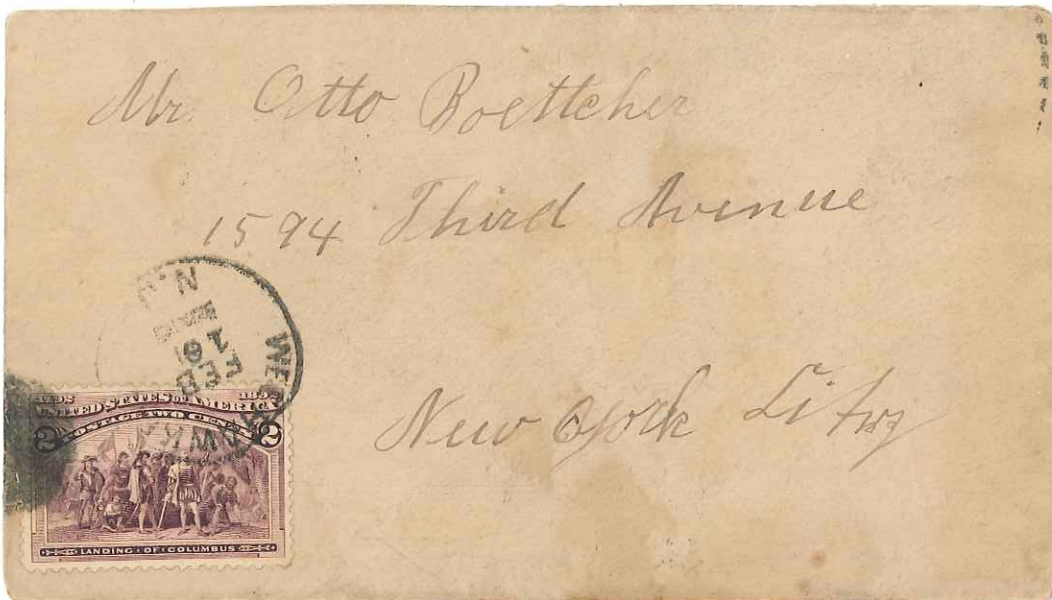 Mr. Otto Boettcher
1594 Third Avenue
New York City
N.J.
FEB
1492 1892
UNITED STATES OF AMERICA
POSTAGE TWO CENTS
2 2
LANDING OF COLUMBUS